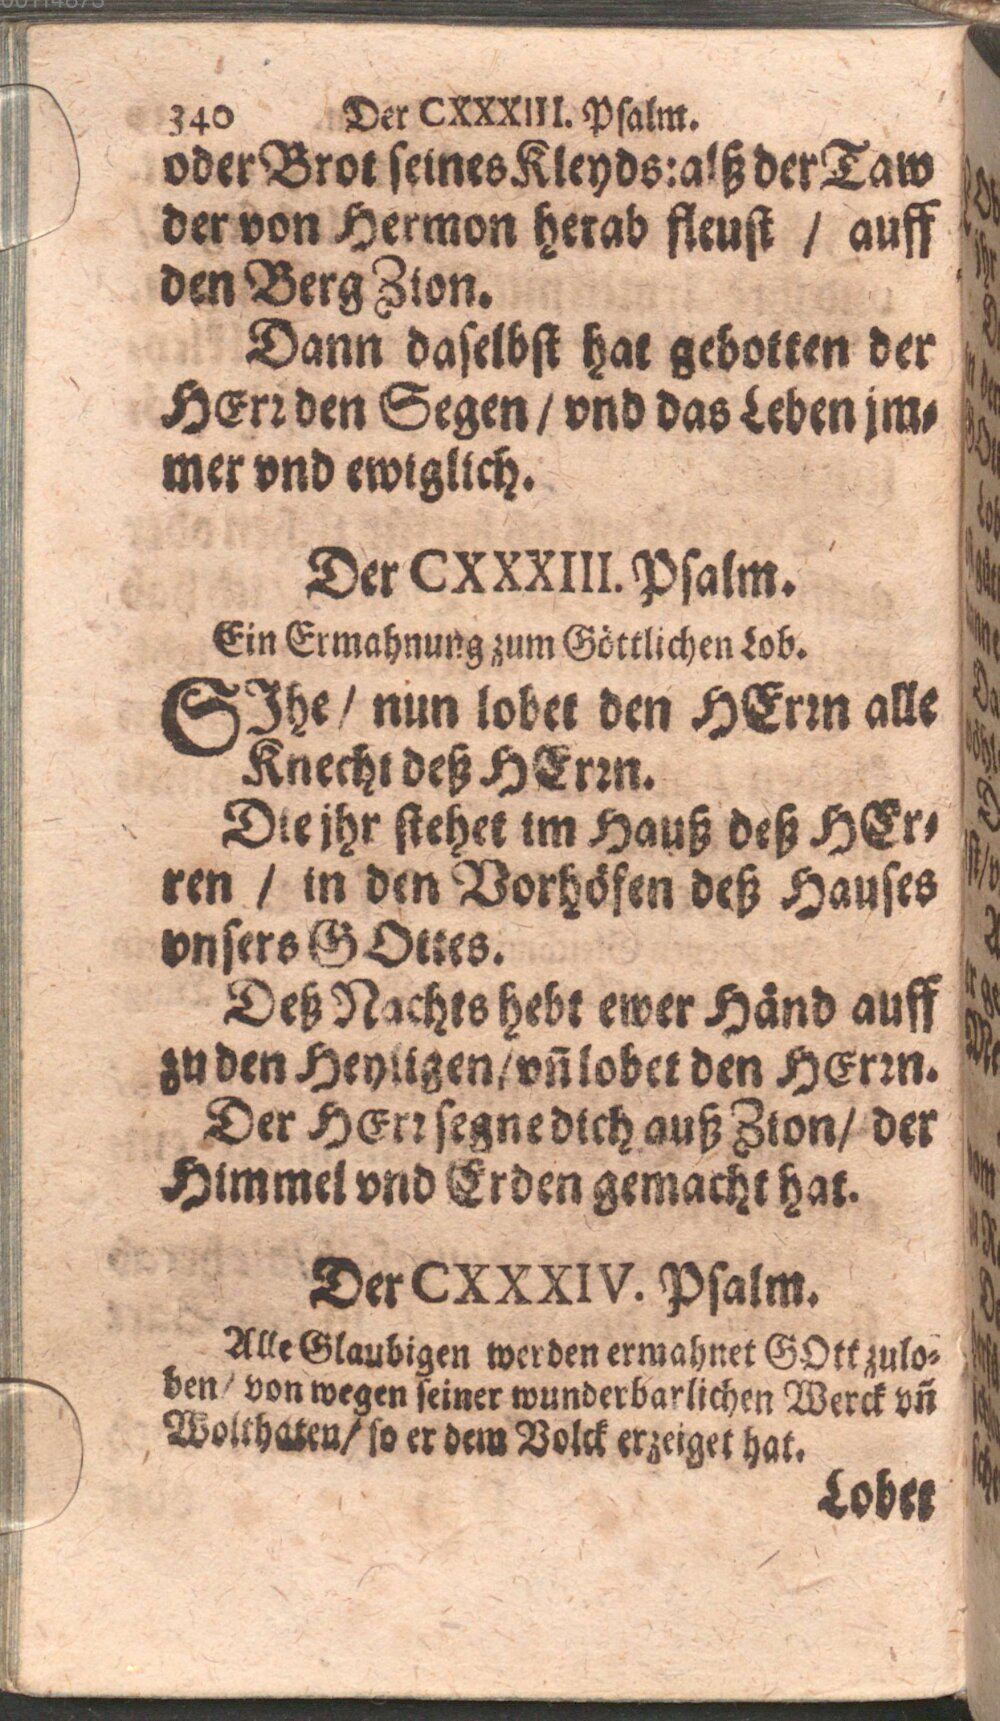 340 Der CXXXIII. Psalm.
oder Brot seines Kleyds: alß der Taw
der von Hermon herab fleust / auff
den Berg Zion.
Dann daselbst hat gebotten der
HErr den Segen / vnd das Leben jm-
mer vnd ewiglich.
Der CXXXIII. Psalm.
Ein Ermahnung zum Göttlichen Lob.
SJhe / nun lobet den HErrn alle
Knecht deß HErrn.
Die jhr stehet im Hauß deß HEr-
ren / in den Vorhöfen deß Hauses
vnsers GOttes.
Deß Nachts hebt ewer Händ auff
zu den Heyligen / vñ lobet den HErrn.
Der HErr segne dich auß Zion / der
Himmel vnd Erden gemacht hat.
Der CXXXIV. Psalm.
Alle Glaubigen werden ermahnet GOtt zu lo-
ben / von wegen seiner wunderbarlichen Werck vñ
Wolthaten / so er dem Volck erzeiget hat.
Lobet